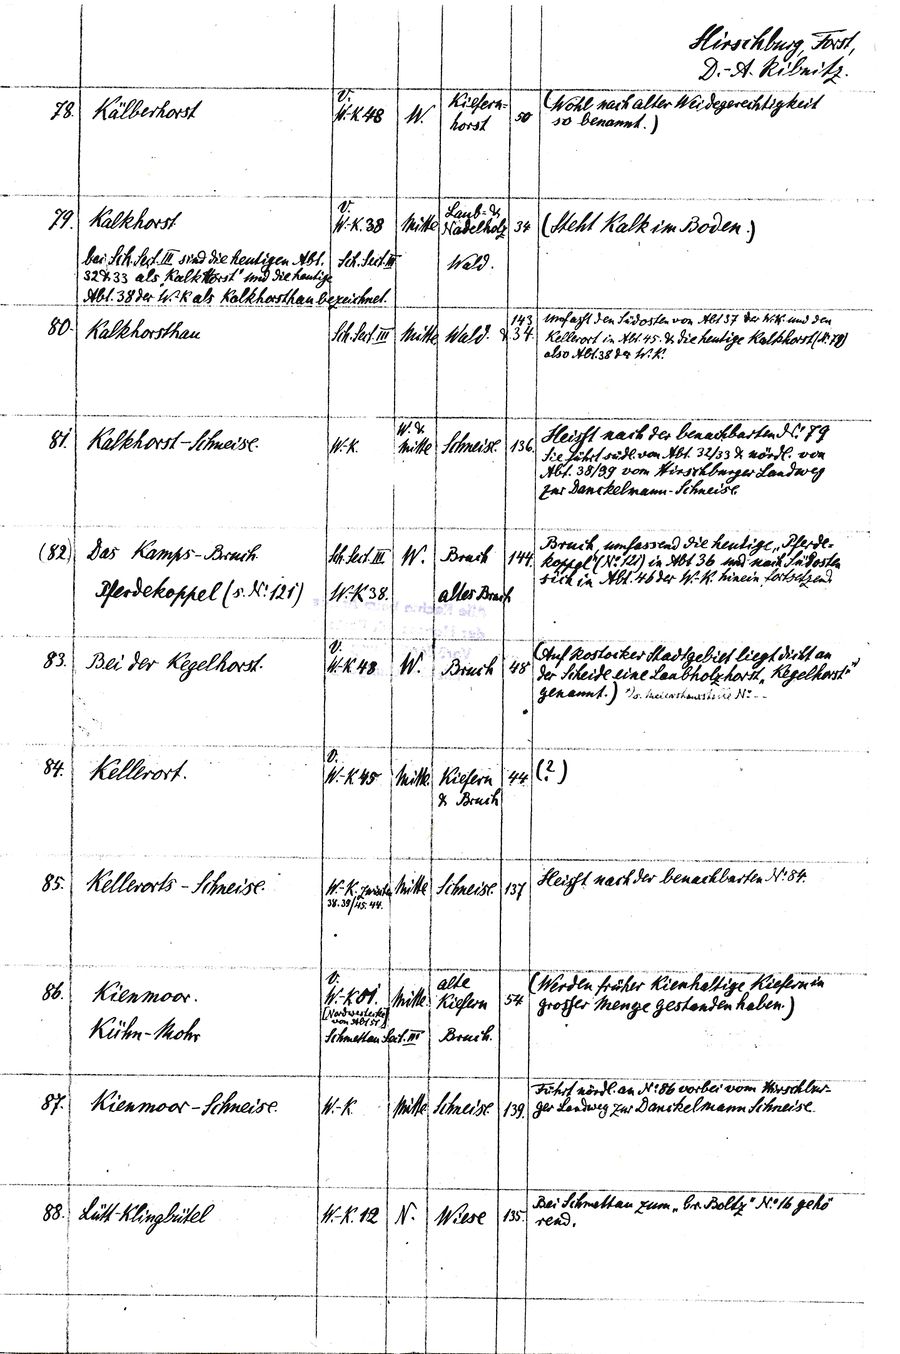 Hirschburg, Forst,
D.-A. Ribnitz.
78. Kälberhorst V. W.-K 48 W. Kiefern-horst 50 (Wohl nach alter Weidegerechtigkeit
so benannt.)
79. Kalkhorst V. W.-K. 38 Mitte Laub- & Nadelholz 34 (Steht Kalk im Boden.)
bei Sch. Sect. III sind die heutigen Abt. Sch. Sect. III Wald.
32 & 33 als "Kalkhorst" und die heutige
Abt. 38 der W.-K als Kalkhorsthau bezeichnet.
80. Kalkhorsthau Sch. Sect. III Mitte Wald. 143 & 34. Umfaßt den Südosten von Abt 37 der W.K. und den
Kellerort in Abt. 45. & die heutige Kalkhorst (N:79)
also Abt. 38 der W.K.
81. Kalkhorst-Schneise. W-K. W. & Mitte Schneise. 136. Heißt nach der benachbarten N: 79
Sie führt südl. von Abt. 32/33 & nördl. von
Abt. 38/39 vom Hirschburger Landweg
zur Danckelmann-Schneise.
(82) Das Kamps-Bruch Sch. Sect. III W. Bruch 144. Bruch, umfassend die heutige "Pferde-
koppel" (N: 121) in Abt 36 und nach Südosten
sich in Abt. 46 der W-K. hinein fortsetzend
Pferdekoppel (s. N: 121) W-K 38. altes Bruch
83. Bei der Kegelhorst. V. W-K 48 W. Bruch 48 (Auf Rostocker Stadtgebiet liegt dicht an
der Scheide eine Laubholzhorst "Kegelhorst"
genannt.)
84. Kellerort. V. W.-K 45 Mitte Kiefern & Bruch 44 (?)
85. Kellerorts-Schneise. W-K. zwischen 38.39/45.44. Mitte Schneise. 137 Heißt nach der benachbarten N: 84.
86. Kienmoor. V. W.-K 51. Mitte alte Kiefern 54 (Werden früher kienhaltige Kiefern in
großer Menge gestanden haben.)
[Nordwestecke von Abt 51.]
Kühn-Mohr Schmettau Sect. III Bruch.
87. Kienmoor-Schneise. W.-K Mitte Schneise 139. Führt nördl. an N: 86 vorbei vom Hirschbur-
ger Landweg zur Danckelmann Schneise.
88. Lütt-Klingbütel W-K. 12 N. Wiese 135. Bei Schmettau zum "br. Boltz" N: 16 gehö
rend.